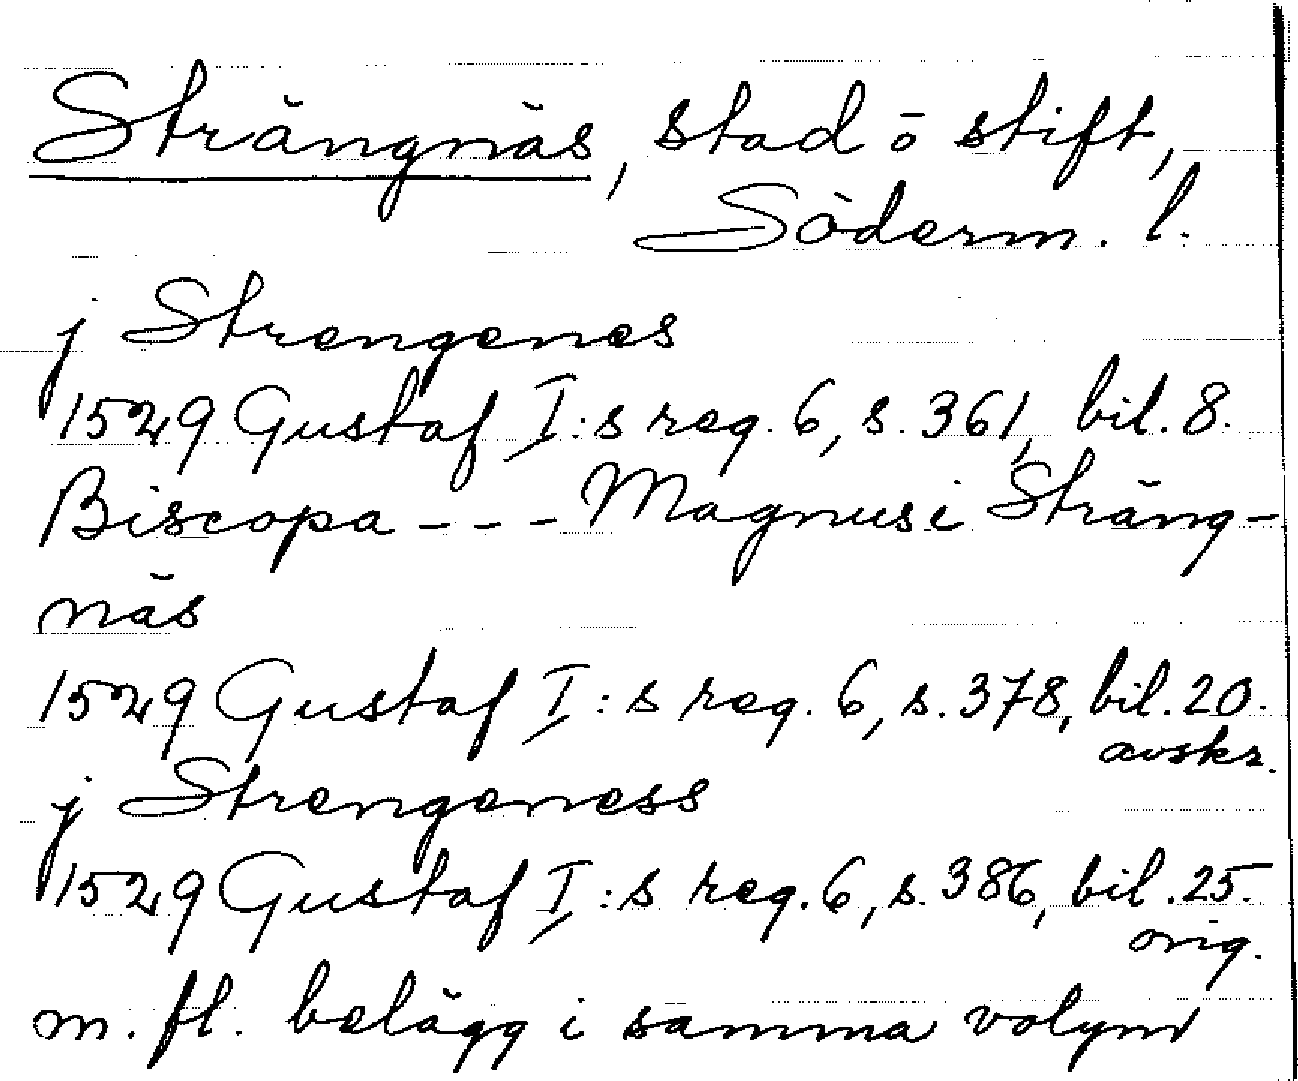 Strängnäs, stad ō stift,
Söderm. l.
j Strengenes
1529 Gustaf I:s reg. 6, s. 361, bil. 8.
Biscopa - - - Magnus i Sträng-
näs
1529 Gustaf I:s reg. 6, s. 378, bil. 20.
avskr.
j Strengeness
1529 Gustaf I:s reg. 6, s. 386, bil. 25.
orig.
m. fl. belägg i samma volym